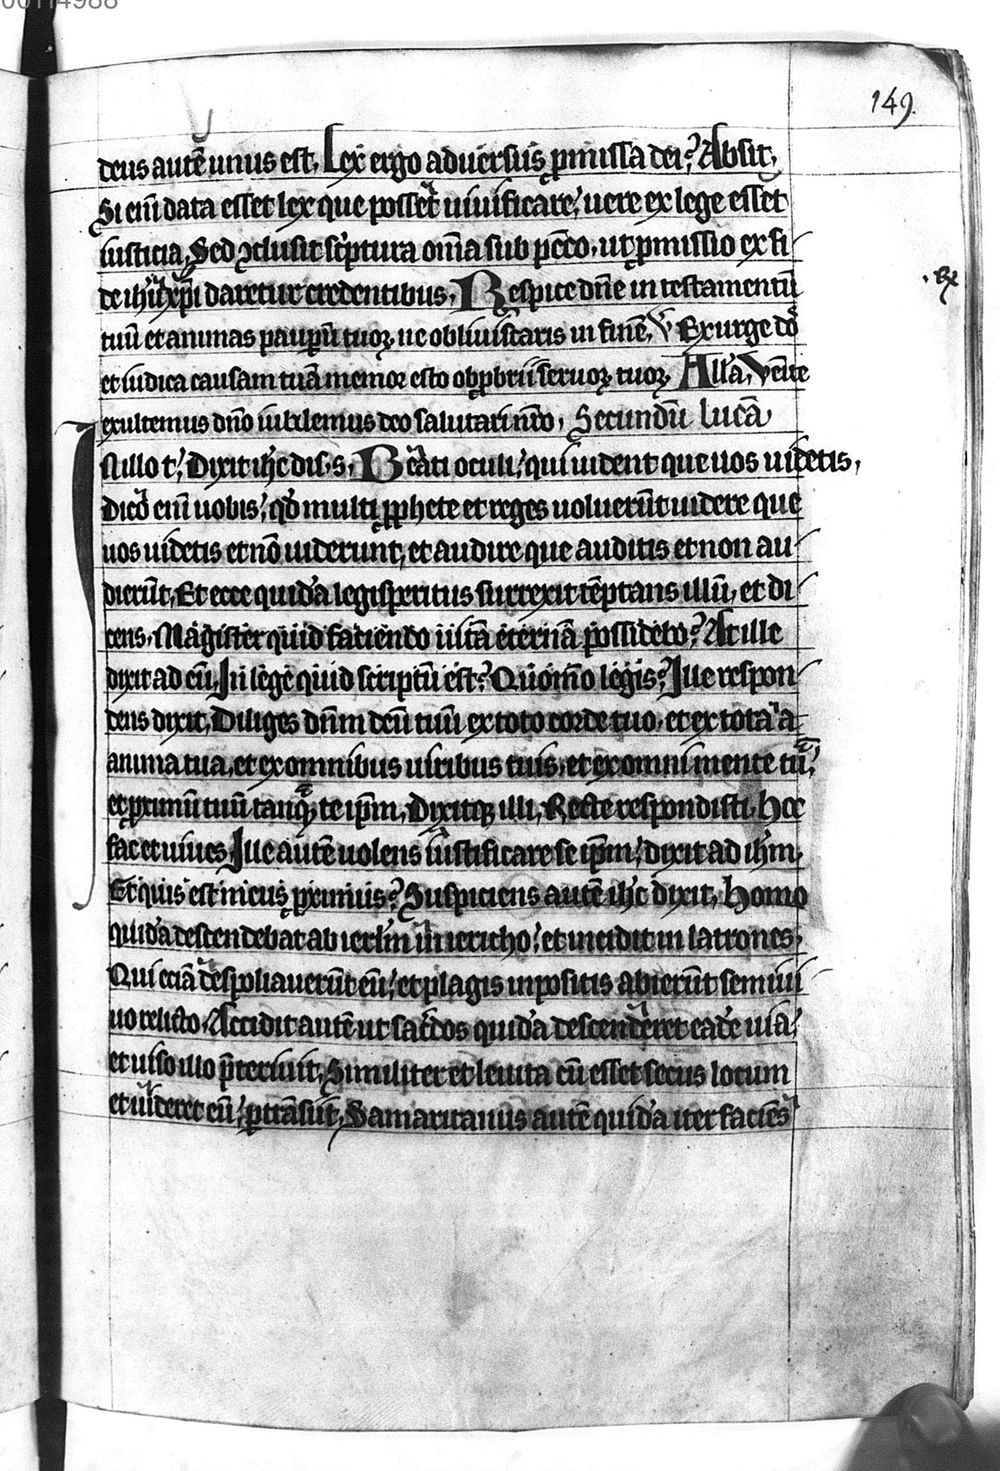 00114988
149.
deus autē unus est. Lex ergo aduersus ꝓmissa dei? Absit.
Si eni̅ data esset lex que posset uiuificare; uere ex lege esset
iusticia. Sed ꝯclusit sc̅ptura om̅ia sub pc̅co. ut ꝓmissio ex fi
de ihu xp̅i daretur credentibus. Respice dn̅e in testamentū
tuū et animas pauperū tuoꝝ ne obliuiscaris in finē. V Exurge do̅
et iudica causam tuā memor esto obꝓbrii seruoꝝ tuoꝝ. All'a. Venite
exultemus dn̅o iubilemus deo salutari nr̅o. Secundū Lucā
.Ex
In illo t'. Dixit ihc dis. s. Beati oculi; qui uident que uos uidetis.
Dico eni̅ uobis; qd̅ multi ꝓphete et reges uoluerūt uidere que
uos uidetis et nō uiderunt; et audire que auditis et non au
dierūt. Et ecce quidā legisperitus surrexit tēptans illū. et di
cens. Magister quid faciendo uitā eternā possidebo? At ille
dixit ad eū. In lege quid scriptū est? Quomo̅ legis? Ille respon
dens dixit. Diliges dn̅m deū tuū ex toto corde tuo. et ex tota a
anima tua. et ex omnibus uiribus tuis. et ex omni mente tuā.
et ꝓximū tuū tanqᷓ te ip̅m. Dixitqꝫ illi. Recte respondisti. hoc
fac et uiues. Ille autē uolens iustificare se ip̅m; dixit ad ihm.
Et quis est meus ꝓximus? Suspiciens autē ihc dixit. Homo
quidā descendebat ab ierl̅m in iericho; et incidit in latrones.
Qui eciā despoliauerūt eū; et plagis inpositis abierūt semiui
uo relicto. Accidit autē ut sac̅dos quidā descenderet eadē uia;
et uiso illo p̅teriuit. Similiter et leuita cū esset secus locum
et uideret eū; ꝑtrāsiit. Samaritanus autē quidā iter faciēs